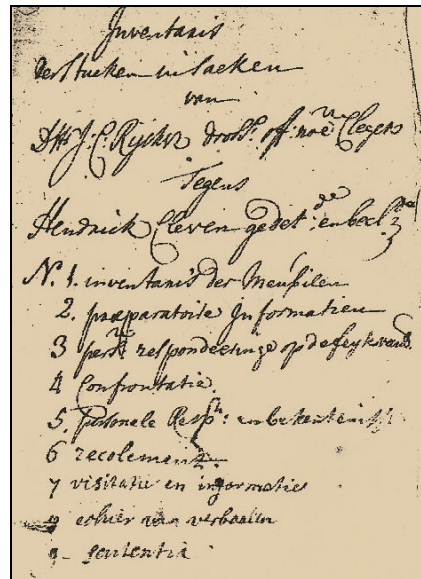 Inventaris
der Stucken in saeken
van
D'Hr J: C: Ryckx dross.t off: noe Clegers
Tegens
Hendrick Cleven gedet:de en becl:
N. 1. inventaris der Meubilen
2. præparatoire Informatien
3 pers: respondeeringe op de feyten
4 Confrontatie.
5. Personele Resp: en bekentenisse
6 recolement.
7 visitatie en informatie
8 cohier van verbaelen
9 - sententia